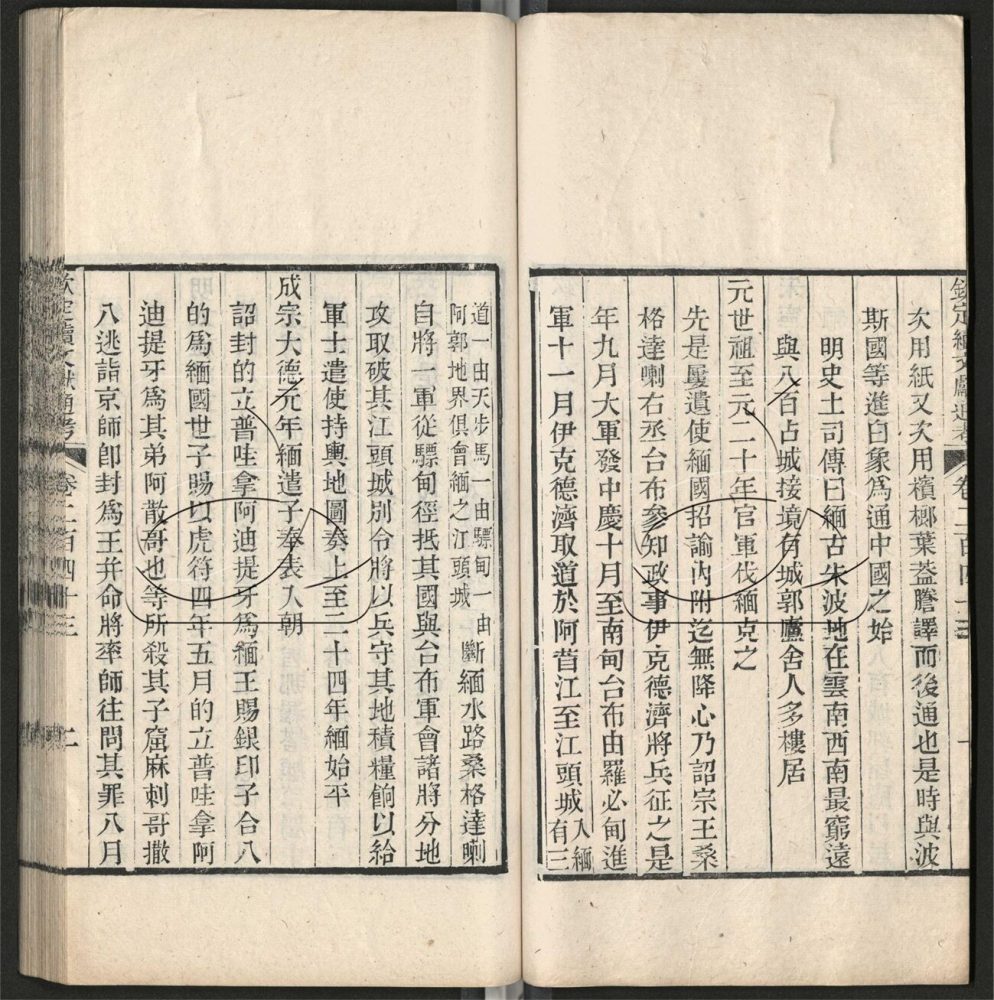 欽定續文獻通考 卷二百四十三 一
次用紙又次用檳榔葉蓋謄譯而後通也是時與波
斯國等進白象爲通中國之始
明史土司傳曰緬古朱波地在雲南西南最窮遠
與八百占城接境有城郭廬舍人多樓居
元世祖至元二十年官軍伐緬克之
先是屢遣使緬國招諭內附迄無降心乃詔宗王桑
格達喇右丞台布參知政事伊克德濟將兵征之是
年九月大軍發中慶十月至南甸台布由羅必甸進
軍十一月伊克德濟取道於阿昔江至江頭城入緬有三
道一由天步馬一由驃甸一由阿郭地界俱會緬之江頭城斷緬水路桑格達喇
自將一軍從驃甸徑抵其國與台布軍會諸將分地
攻取破其江頭城別令將以兵守其地積糧餉以給
軍士遣使持輿地圖奏上至二十四年緬始平
成宗大德元年緬遣子奉表入朝
詔封的立普哇拿阿迪提牙爲緬王賜銀印子合八
的爲緬國世子賜以虎符四年五月的立普哇拿阿
迪提牙爲其弟阿散哥也等所殺其子窟麻剌哥撒
八逃詣京師卽封爲王幷命將率師往問其罪八月
欽定續文獻通考 卷二百四十三 二